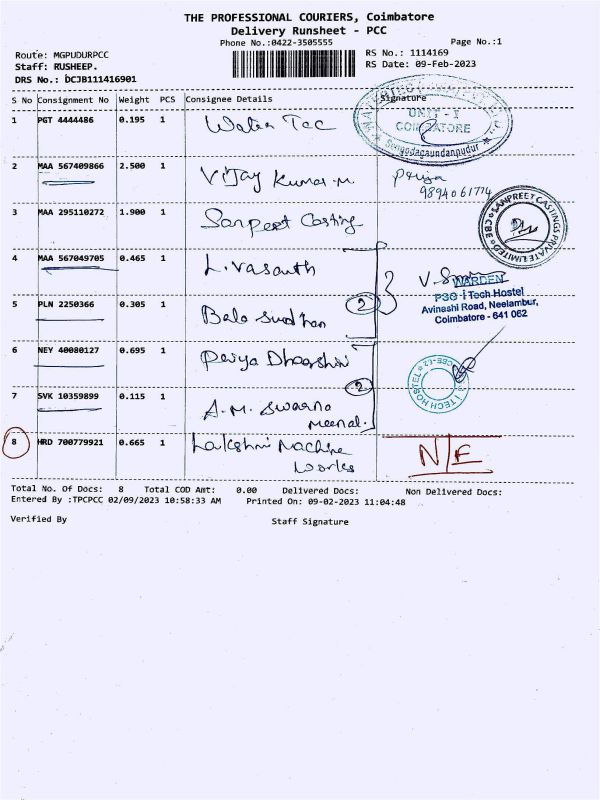 THE PROFESSIONAL COURIERS, Coimbatore
Delivery Runsheet - PCC
Phone No.:0422-3505555
Page No.:1
Route: MGPUDURPCC
RS No.: 1114169
Staff: RUSHEEP.
RS Date: 09-Feb-2023
DRS No.: DCJB111416901
S No Consignment No Weight PCS Consignee Details Signature
UNIT - I
COIMBATORE
Sengodagaundanpudur
1 PGT 4444486 0.195 1 Water Tec
2 MAA 567409866 2.500 1 Vijay Kumar.M Priya
9894061774
3 MAA 295110272 1.900 1 Sanpeet Casting
SANPREET CASTINGS PRIVATE LIMITED CBE
4 MAA 567049705 0.465 1 L. Vasanth
WARDEN
PSG iTech Hostel
Avinashi Road, Neelambur,
Coimbatore - 641 062
5 PLN 2250366 0.305 1 Bala Sudhan 2
6 NEY 40080127 0.695 1 Priya Dharshini
I TECH HOSTEL CBE-62
7 SVK 10359899 0.115 1 A.M. Swarna 2
Meenal.
8 HRD 700779921 0.665 1 Lakshmi Machine N/E
Works
Total No. Of Docs: 8 Total COD Amt: 0.00 Delivered Docs: Non Delivered Docs:
Entered By :TPCPCC 02/09/2023 10:58:33 AM Printed On: 09-02-2023 11:04:48
Verified By Staff Signature